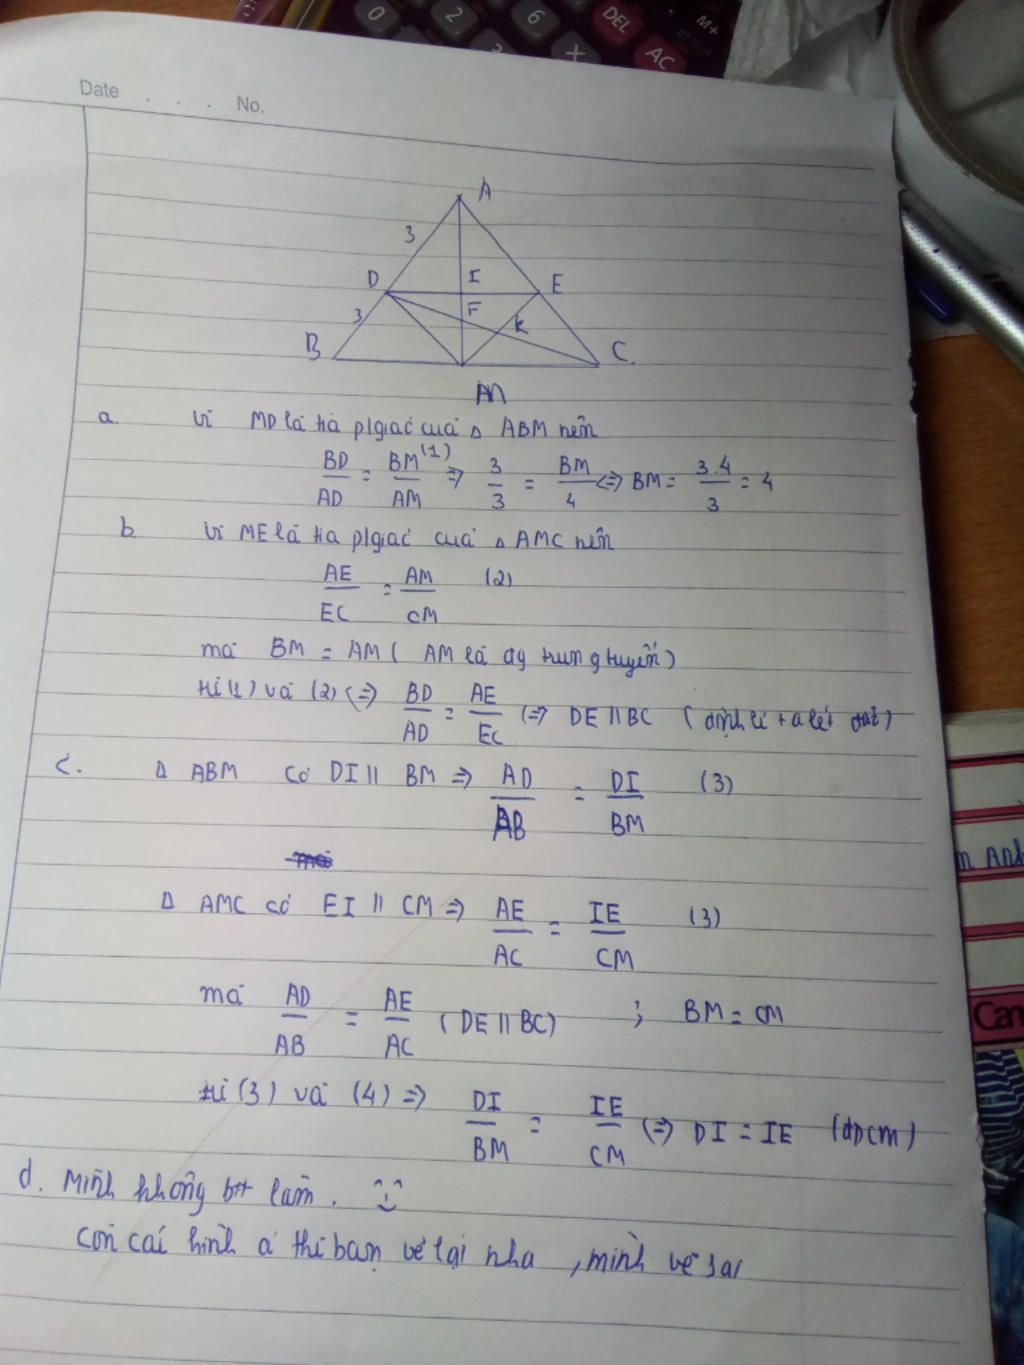 0 2 6 DEL M+
3 + AC
Date . . . No.
A
3
D I E
3 F K
B C
M
a. Vì MD là tia p/giác cuả △ ABM nên
BD/AD = BM/AM (1) => 3/3 = BM/4 <=> BM = 3.4/3 = 4
b. Vì ME là tia p/giác cuả △ AMC nên
AE/EC = AM/CM (2)
mà BM = AM ( AM là đg trung tuyến )
từ (1) và (2) <=> BD/AD = AE/EC <=> DE // BC ( định lí ta lét đảo )
c. △ ABM có DI // BM => AD/AB = DI/BM (3)
△ AMC có EI // CM => AE/AC = IE/CM (3)
mà AD/AB = AE/AC ( DE // BC ) ; BM = CM
từ (3) và (4) => DI/BM = IE/CM <=> DI = IE (đpcm)
d. Mình không bt làm .
còn cái hình á thì bạn vẽ lại nha , mình vẽ sai
Anh
Can